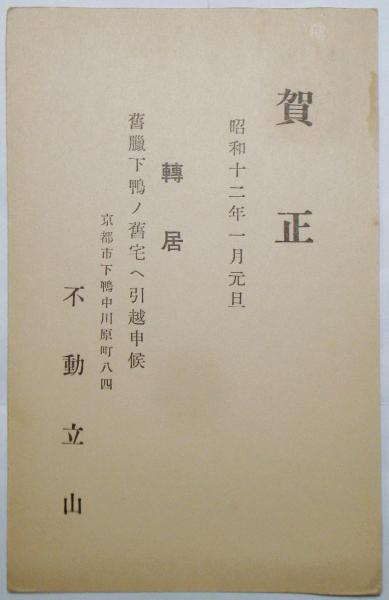 賀正
昭和十二年一月元旦
轉居
舊臘下鴨ノ舊宅ヘ引越申候
京都市下鴨中川原町八四
不動立山